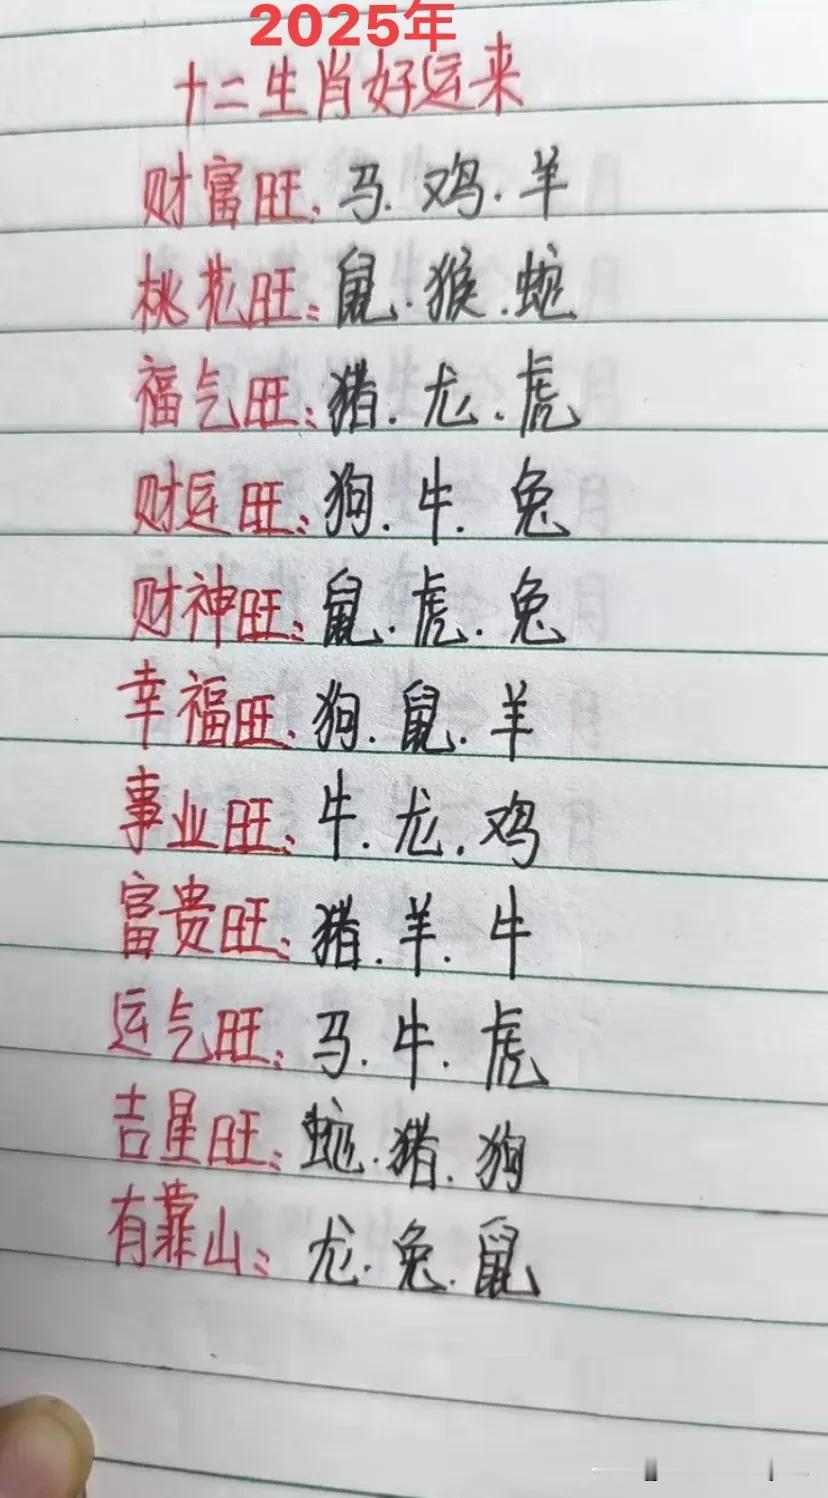 2025年
十二生肖好运来
财富旺：马.鸡.羊
桃花旺：鼠.猴.蛇
福气旺：猪.龙.虎
财运旺：狗.牛.兔
财神旺：鼠.虎.兔
幸福旺：狗.鼠.羊
事业旺：牛.龙.鸡
富贵旺：猪.羊.牛
运气旺：马.牛.虎
吉星旺：蛇.猪.狗
有靠山：龙.兔.鼠